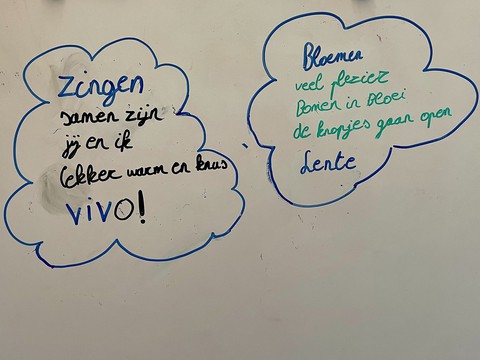 Zingen
samen zijn
jij en ik
lekker warm en knus
VIVO!
Bloemen
veel plezier
Bomen in Bloei
de knopjes gaan open
Lente